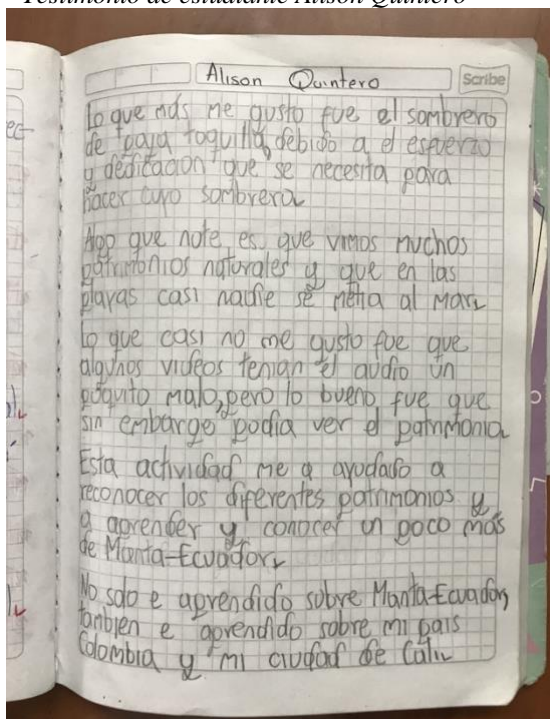 Testimonio de estudiante Alison Quintero
Alison Quintero
Scribe
Lo que más me gusto fue el sombrero
de paja toquilla, debido a el esfuerzo
y dedicación que se necesita para
hacer cuyo sombrero.
Algo que note, es que vimos muchos
patrimonios naturales y que en las
playas casi nadie se metia al mar.
Lo que casi no me gusto fue que
algunos videos tenian el audio un
poquito malo, pero lo bueno fue que
sin embargo podia ver el patrimonio.
Esta actividad me a ayudado a
reconocer los diferentes patrimonios y
a aprender y conocer un poco más
de Manta-Ecuador.
No solo e aprendido sobre Manta-Ecuador,
tanbien e aprendido sobre mi pais
Colombia y mi ciudad de Cali.